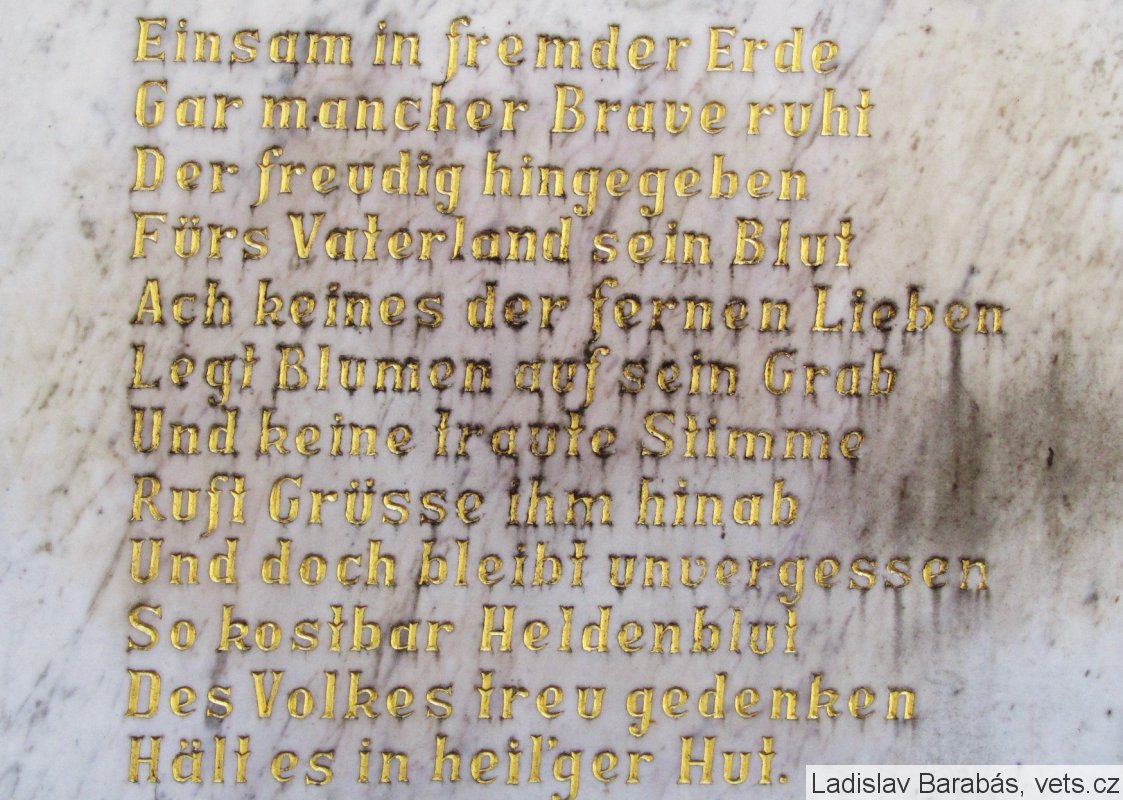 Einsam in fremder Erde
Gar mancher Brave ruht
Der freudig hingegeben
Fürs Vaterland sein Blut
Ach keines der fernen Lieben
Legt Blumen auf sein Grab
Und keine traute Stimme
Ruft Grüsse ihm hinab
Und doch bleibt unvergessen
So kostbar Heldenblut
Des Volkes treu gedenken
Hält es in heil'ger Hut.
Ladislav Barabás, vets.cz